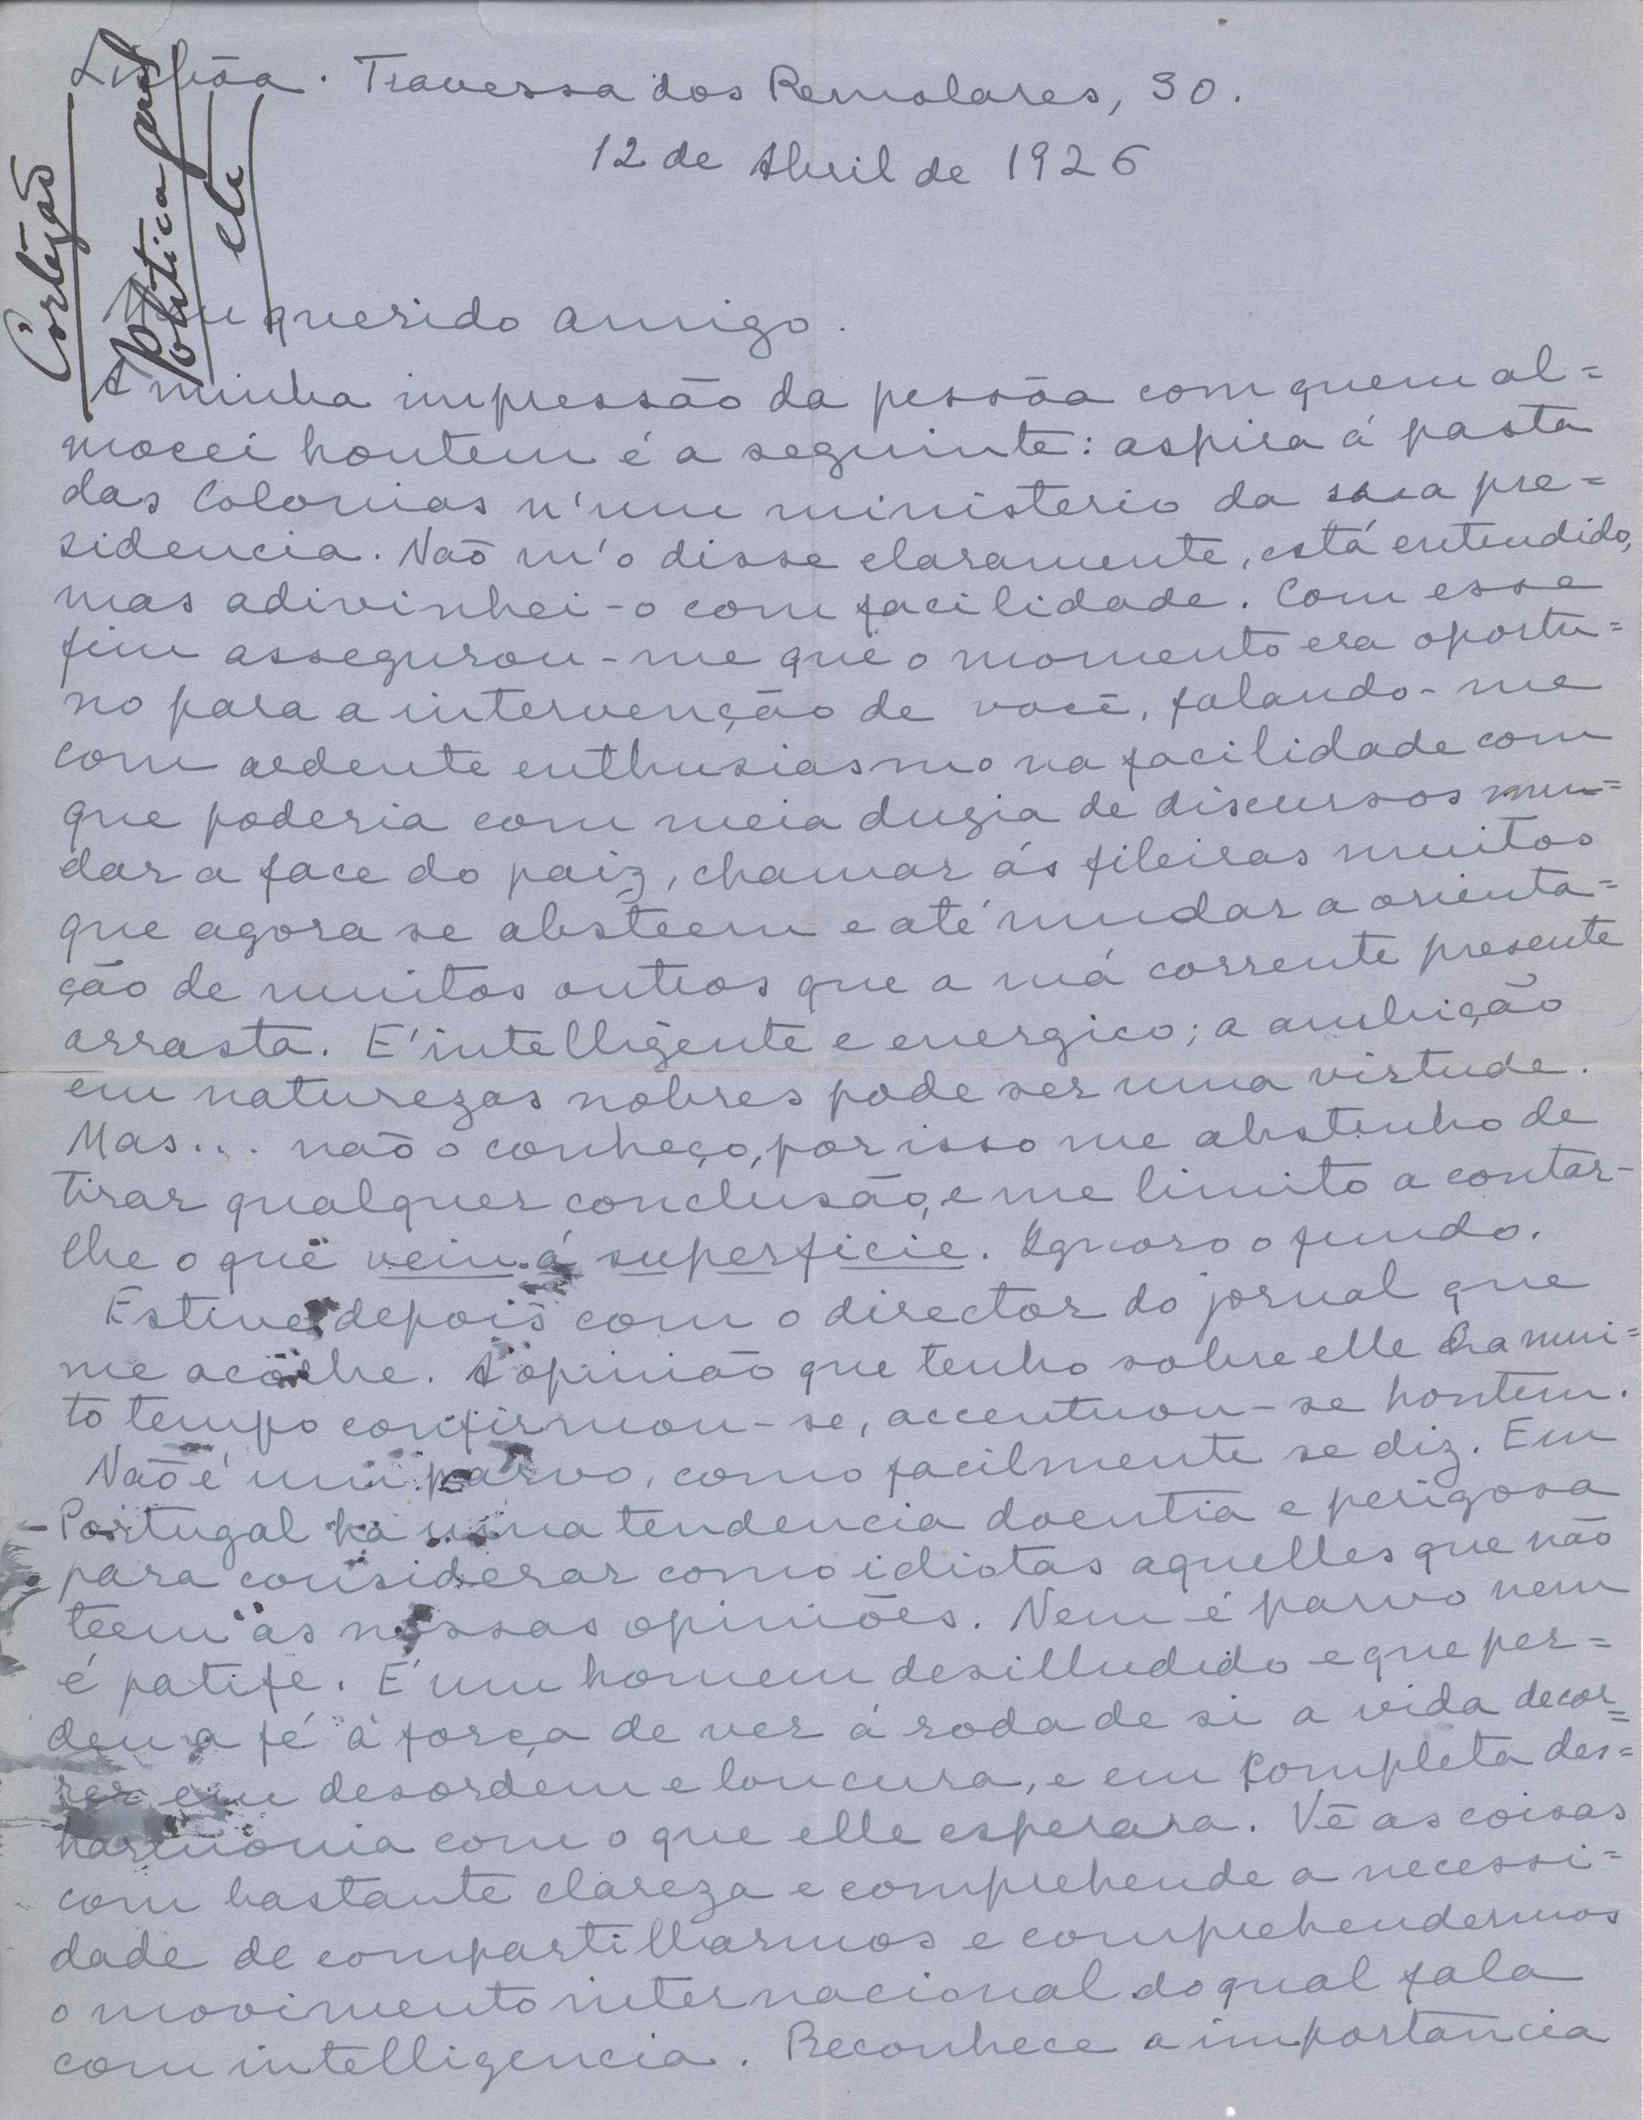 Lisbôa. Travessa dos Remolares, 30.
12 de Abril de 1926
Cortezão
Politica geral
etc
Meu querido amigo.
A minha impressão da pessôa com quem al=
mocei hontem é a seguinte: aspira á pasta
das Colonias n'um ministerio da sua pre=
sidencia. Não m'o disse claramente, está entendido,
mas adivinhei-o com facilidade. Com esse
fim assegurou-me que o momento era oportu=
no para a intervenção de você, falando-me
com ardente enthusiasmo na facilidade com
que poderia com meia duzia de discursos mu=
dar a face do paiz, chamar ás fileiras muitos
que agora se absteem e até mudar a orienta=
ção de muitos outros que a má corrente presente
arrasta. E' intelligente e energico; a ambição
em naturezas nobres pode ser uma virtude.
Mas... não o conheço, por isso me abstenho de
tirar qualquer conclusão, e me limito a contar-
lhe o que veiu á superficie. Ignoro o fundo.
Estive depois com o director do jornal que
me acolhe. A opinião que tenho sobre elle ha mui=
to tempo confirmou-se, accentuou-se hontem.
Não é um parvo, como facilmente se diz. Em
Portugal ha uma tendencia doentia e perigosa
para considerar como idiotas aquelles que não
teem as nossas opiniões. Nem é parvo nem
é patife. E' um homem desilludido e que per=
deu a fé á força de ver á roda de si a vida decor=
rer em desordem e loucura, e em completa des=
harmonia com o que elle esperara. Vê as coisas
com bastante clareza e comprehende a necessi=
dade de compartilharmos e comprehendermos
o movimento internacional do qual fala
com intelligencia. Reconhece a importancia